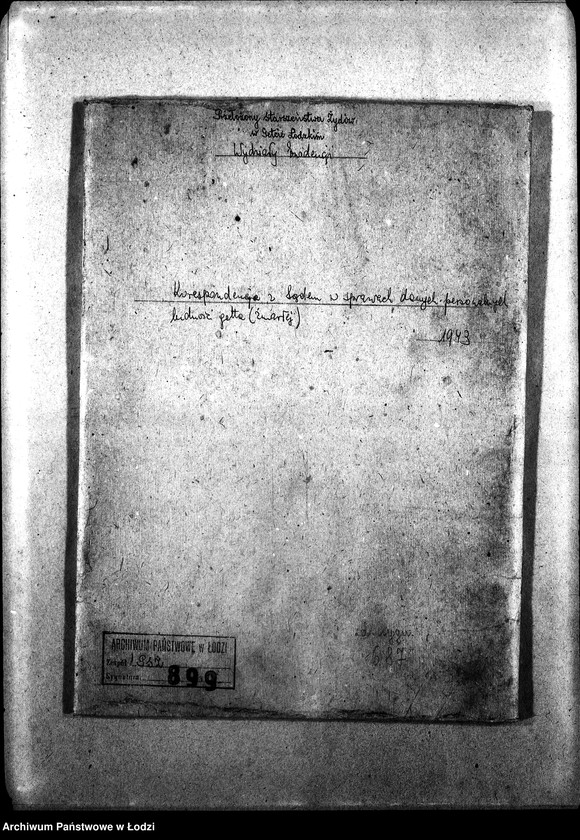 Przełożony Starszeństwa Żydów
w Getcie Łódzkim
Wydziały Ewidencji
Korespondencja z Sądem w sprawach danych personalnych
ludność getta (Zmarłej)
1943
687
ARCHIWUM PAŃSTWOWE w ŁODZI
Zespół
Sygnatura 899
Archiwum Państwowe w Łodzi